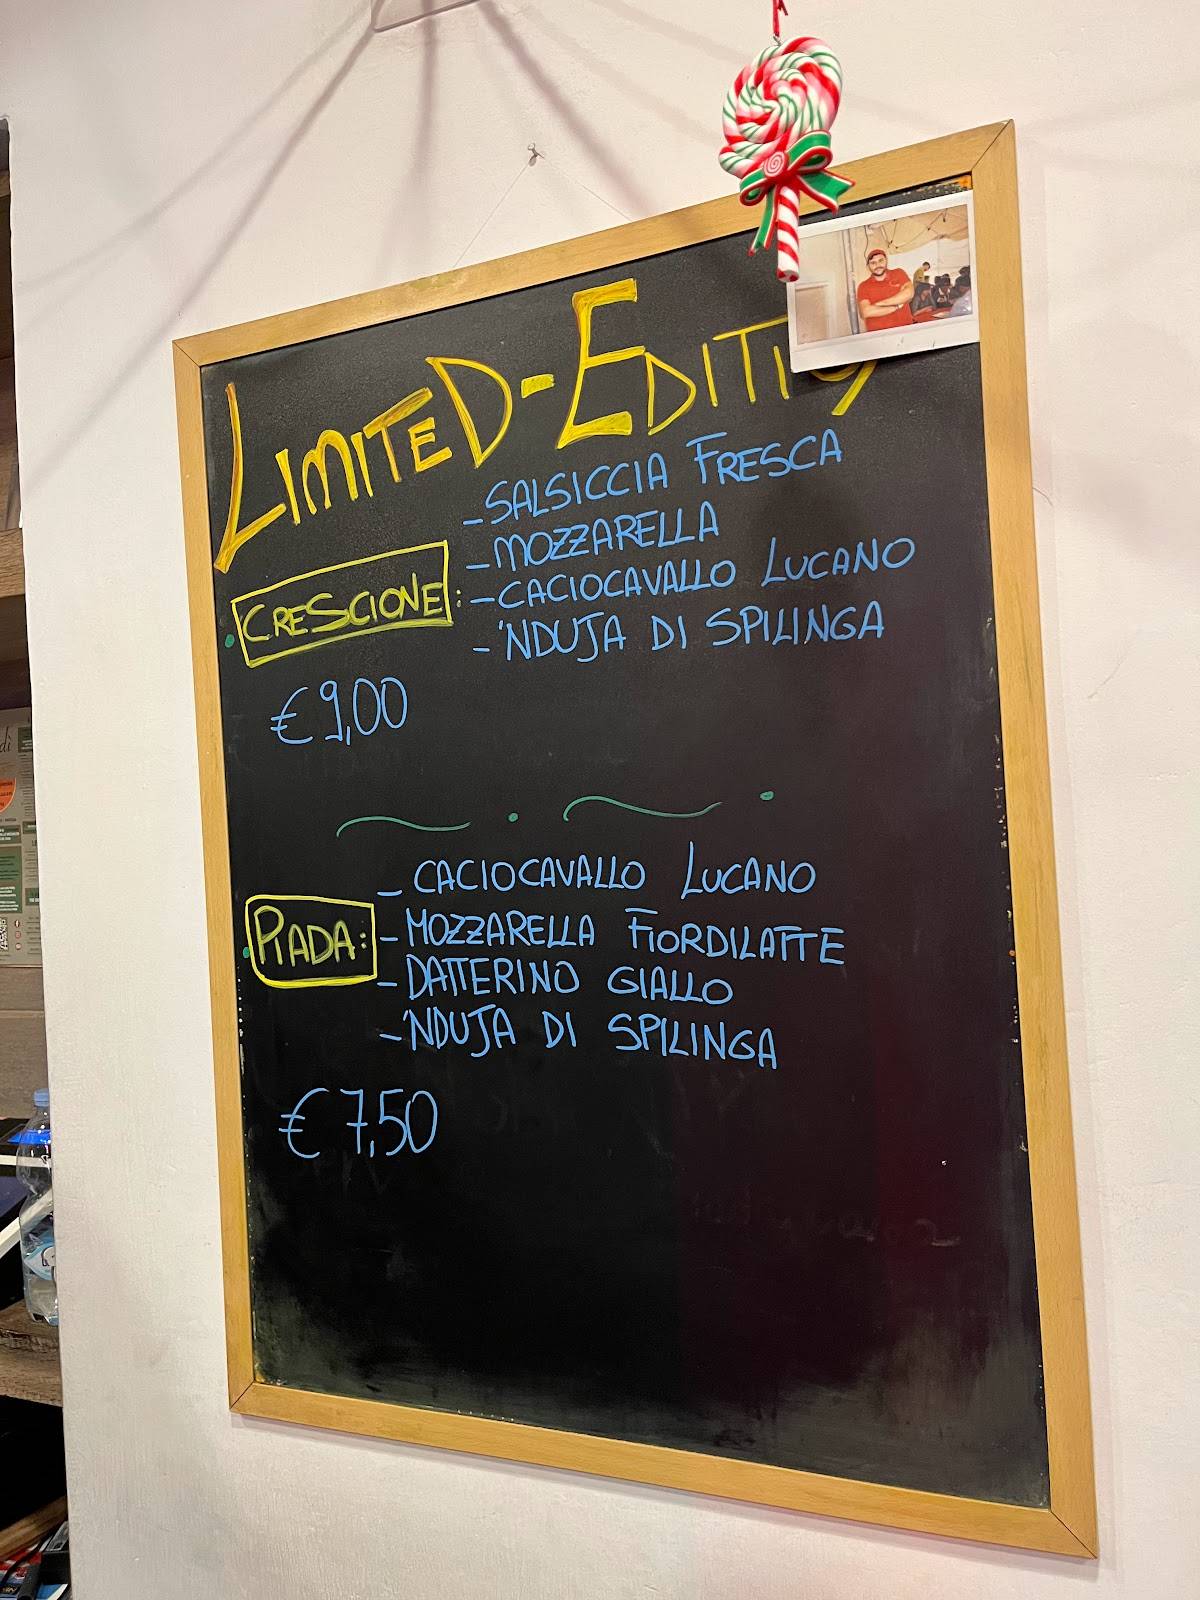 LIMITED-EDITIO
CRESCIONE:
- SALSICCIA FRESCA
- MOZZARELLA
- CACIOCAVALLO LUCANO
- 'NDUJA DI SPILINGA
€ 9,00
PIADA:
- CACIOCAVALLO LUCANO
- MOZZARELLA FIORDILATTE
- DATTERINO GIALLO
- 'NDUJA DI SPILINGA
€ 7,50